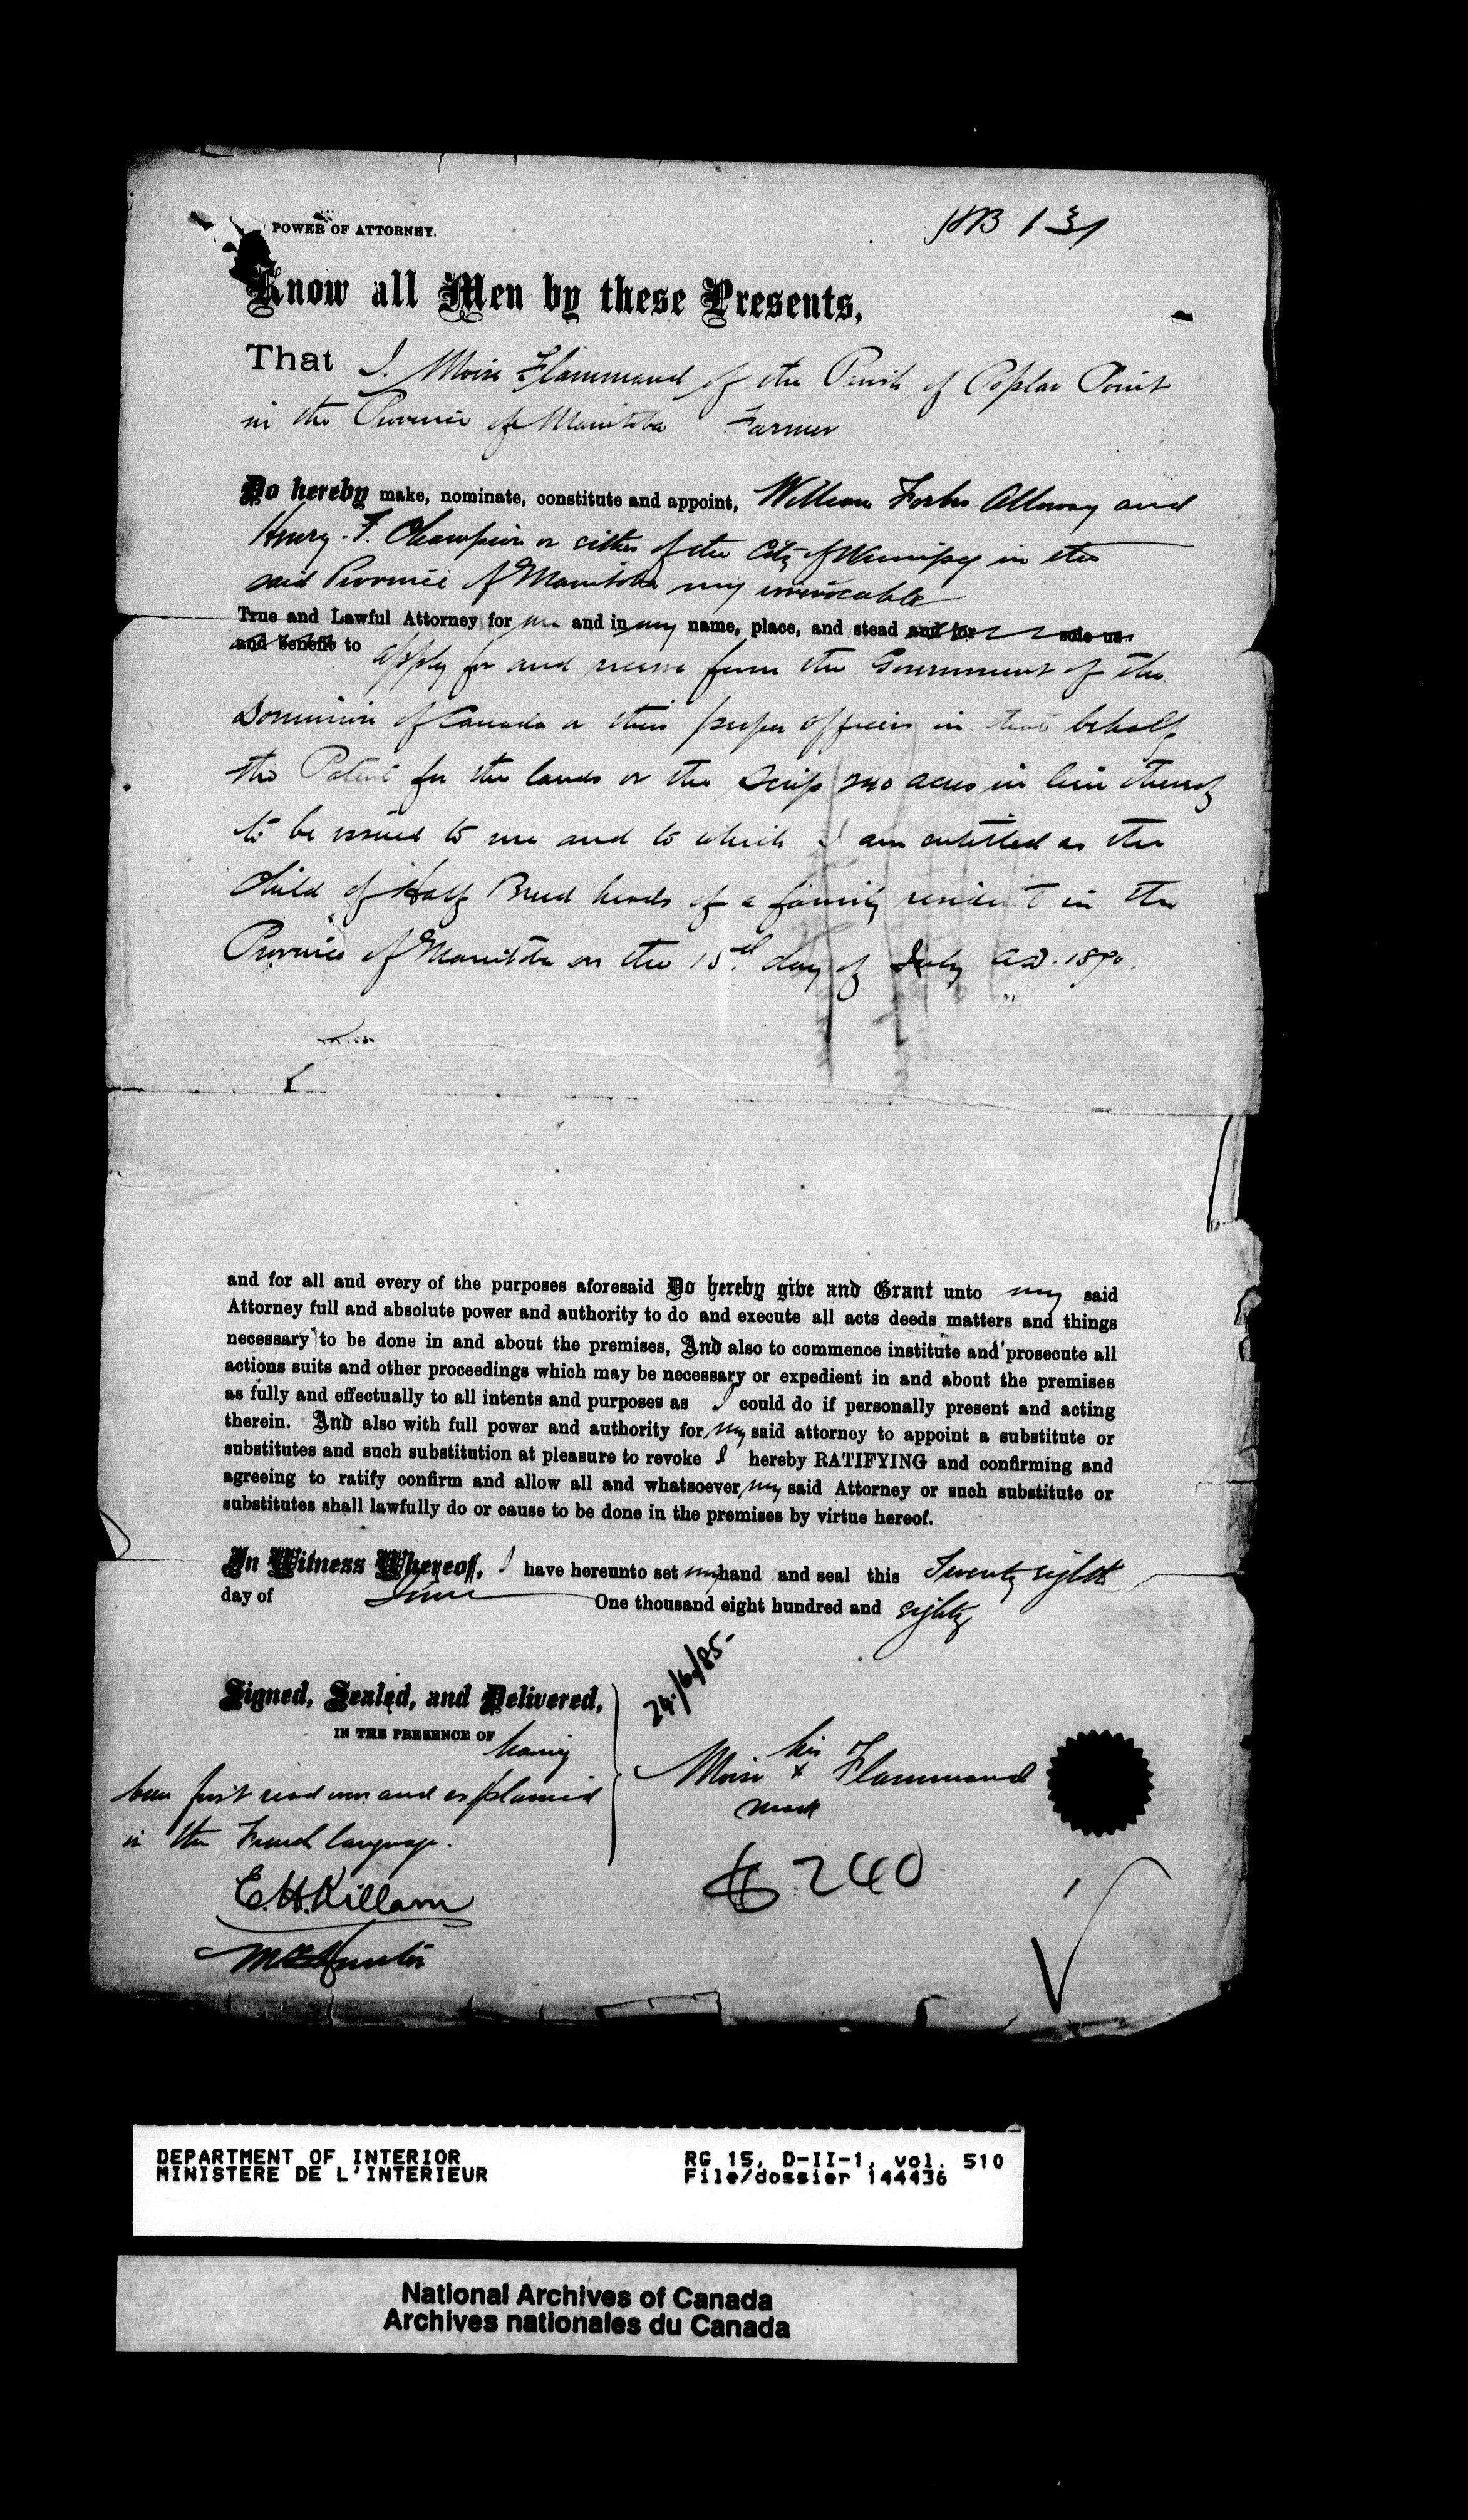 POWER OF ATTORNEY.
Know all Men by these Presents,
That I, Moise Flammand of the Parish of Poplar Point
in the Province of Manitoba Farmer
Do hereby make, nominate, constitute and appoint, William Forbes Alloway and
Henry. F. Champion or either of the City of Winnipeg in the
said Province of Manitoba my irrevocable
True and Lawful Attorney for me and in my name, place, and stead and for sole use
and benefit to apply for and receive from the Government of the
Dominion of Canada or their proper officers in that behalf
the Patent for the lands or the Scrip 240 acres in lieu thereof
to be issued to me and to which I am entitled as the
child of Half Breed heads of a family resident in the
Province of Manitoba on the 15th day of July A.D. 1870.
and for all and every of the purposes aforesaid Do hereby give and Grant unto my said
Attorney full and absolute power and authority to do and execute all acts deeds matters and things
necessary to be done in and about the premises, And also to commence institute and prosecute all
actions suits and other proceedings which may be necessary or expedient in and about the premises
as fully and effectually to all intents and purposes as I could do if personally present and acting
therein. And also with full power and authority for my said attorney to appoint a substitute or
substitutes and such substitution at pleasure to revoke I hereby RATIFYING and confirming and
agreeing to ratify confirm and allow all and whatsoever my said Attorney or such substitute or
substitutes shall lawfully do or cause to be done in the premises by virtue hereof.
In Witness Whereof, I have hereunto set my hand and seal this Twenty eighth
day of June One thousand eight hundred and eighty
24/6/85
Signed, Sealed, and Delivered,
IN THE PRESENCE OF having
been first read over and explained
in the French language.
his
Moise x Flammand
mark
E.H. Killam
$ 240
DEPARTMENT OF INTERIOR
MINISTERE DE L'INTERIEUR
RG 15, D-II-1, vol. 510
File/dossier 144436
National Archives of Canada
Archives nationales du Canada